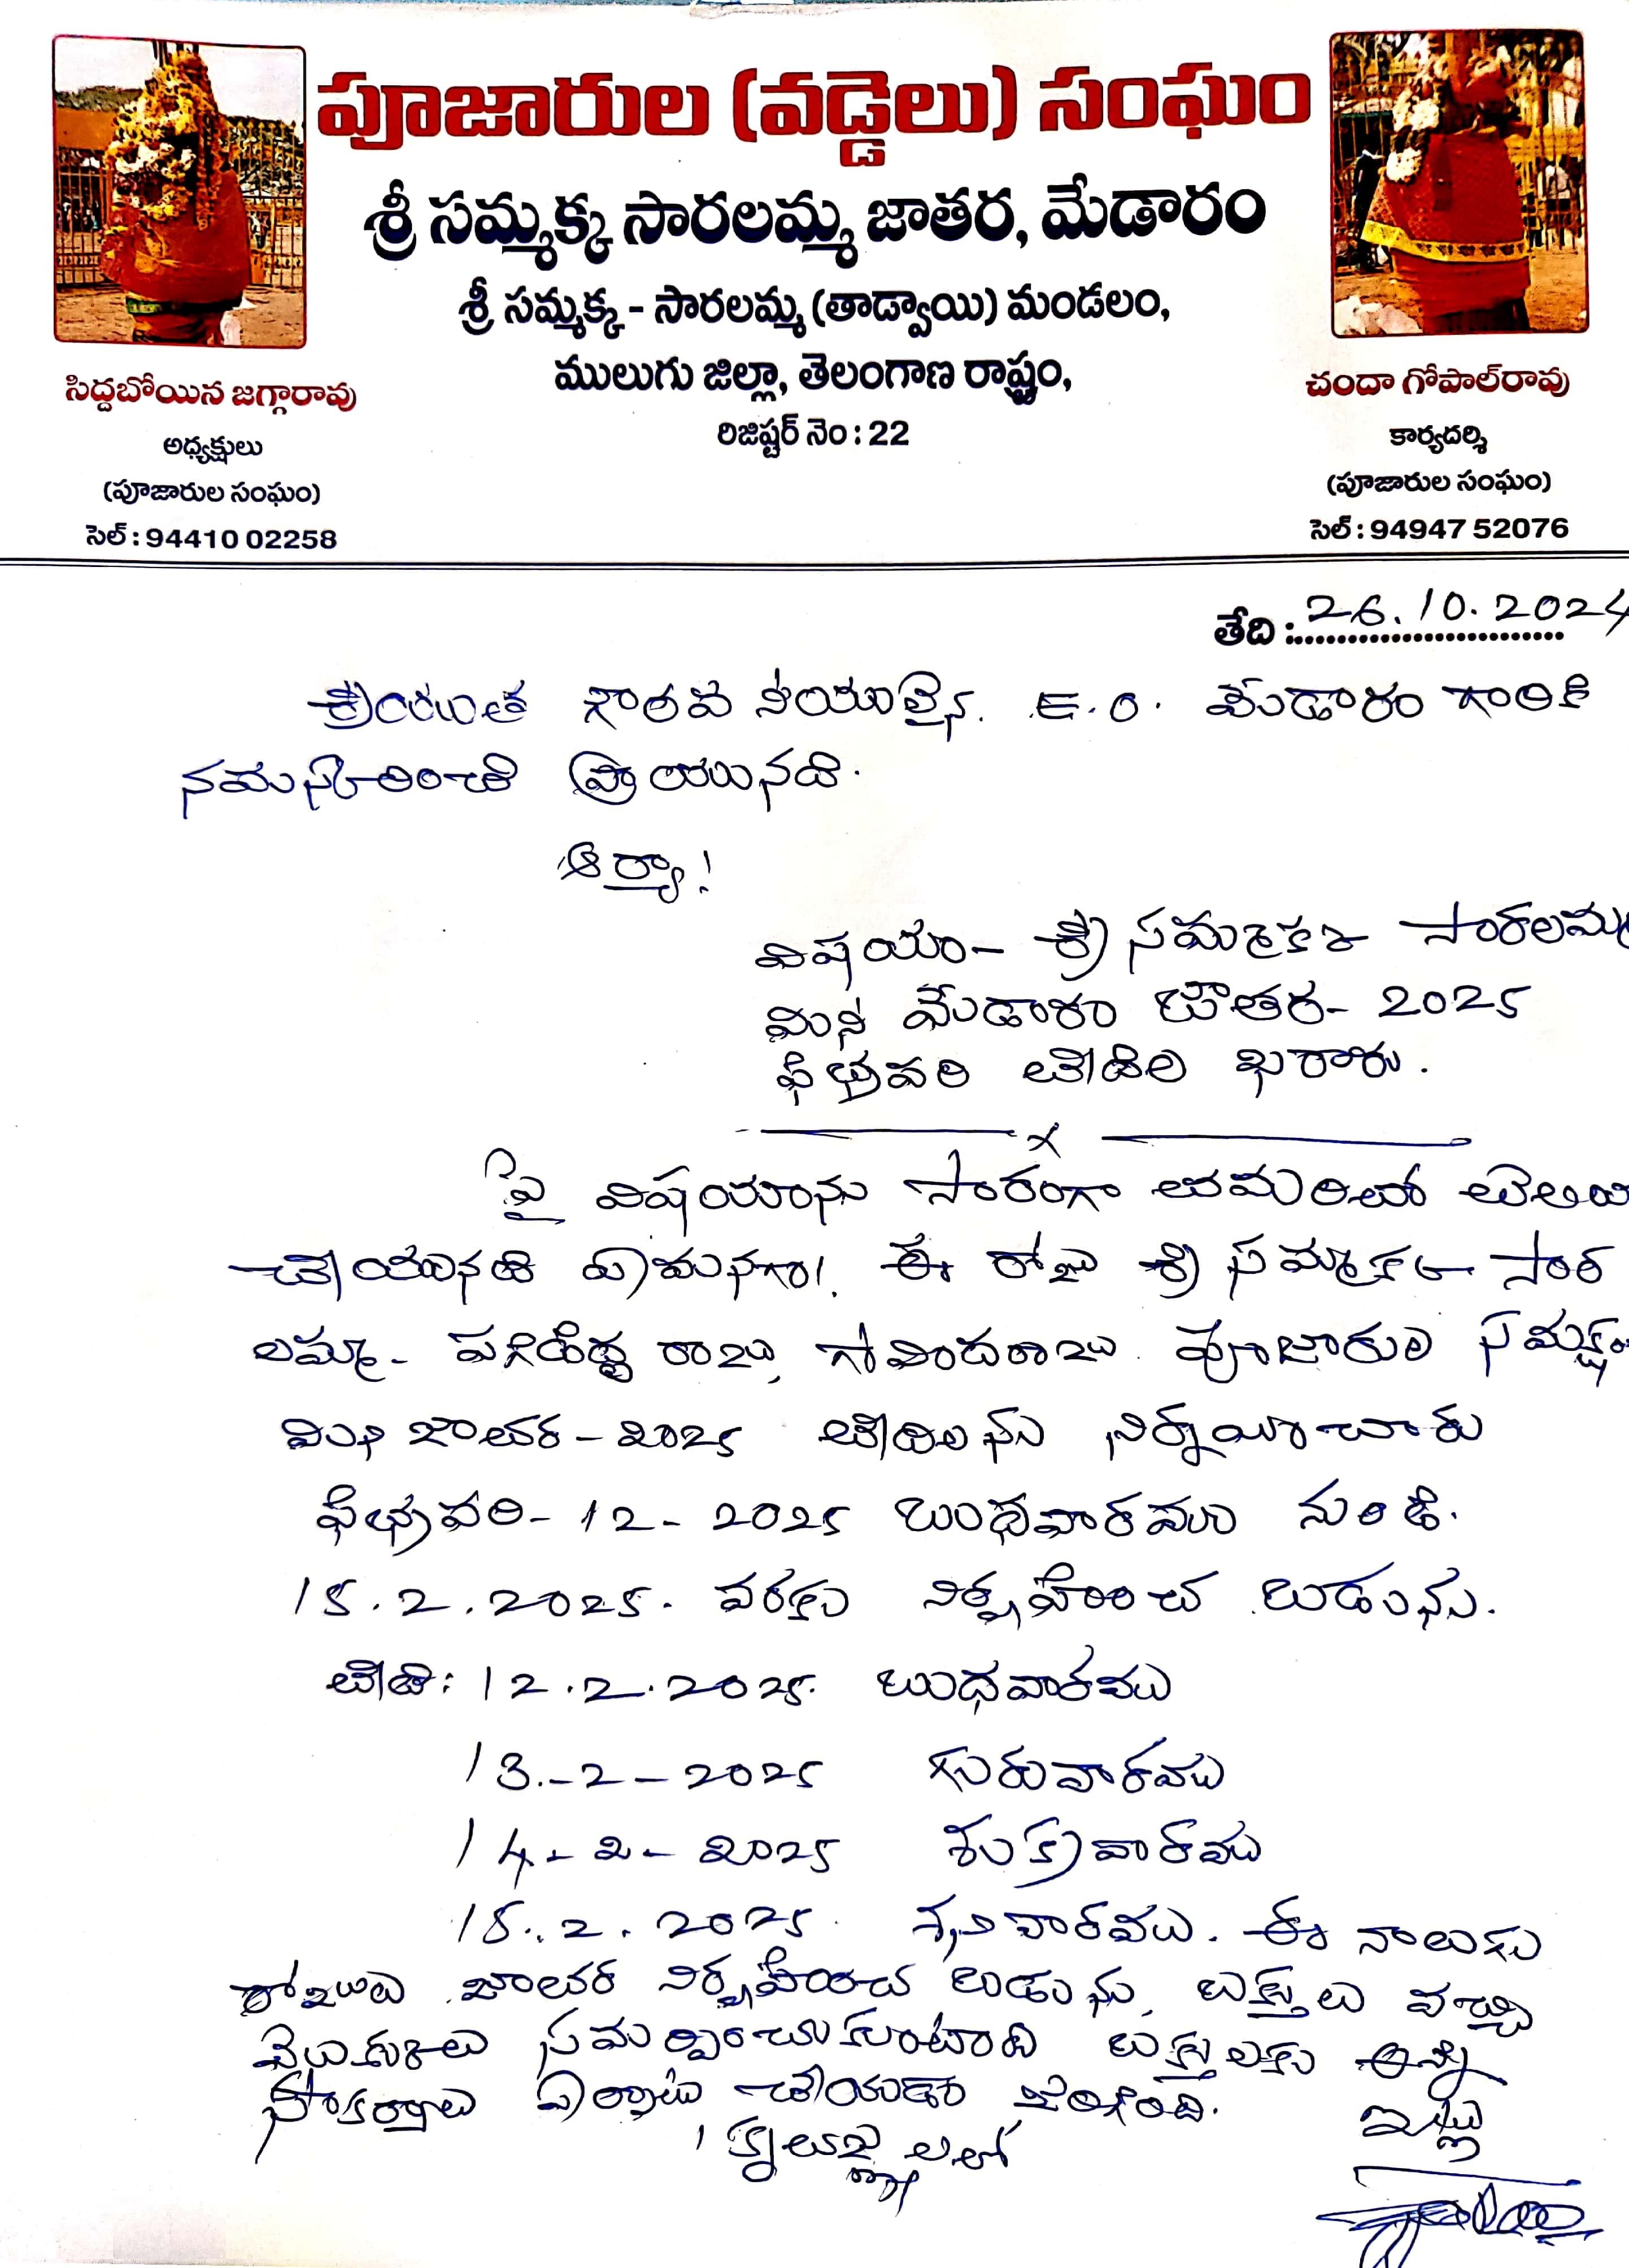 పూజారుల (వడ్డెలు) సంఘం
శ్రీ సమ్మక్క సారలమ్మ జాతర, మేడారం
శ్రీ సమ్మక్క - సారలమ్మ (తాడ్వాయి) మండలం,
ములుగు జిల్లా, తెలంగాణ రాష్ట్రం,
రిజిష్టర్ నెం : 22
సిద్దబోయిన జగ్గారావు
అధ్యక్షులు
(పూజారుల సంఘం)
సెల్ : 94410 02258
చందా గోపాల్‌రావు
కార్యదర్శి
(పూజారుల సంఘం)
సెల్ : 94947 52076
తేది : 26.10.2024
శ్రీయుత గౌరవ నీయులైన. E.O. మేడారం గారికి
నమస్కరించి వ్రాయునది.
ఆర్యా!
విషయం- శ్రీ సమ్మక్క సారలమ్మ
మినీ మేడారం జాతర- 2025
ఫిబ్రవరి తేదిల ఖరారు.
పై విషయాను సారంగా తమరితో తెలియ
చేయునది ఏమనగా!. ఈ రోజు శ్రీ సమ్మక్క సార
లమ్మ- పగిడిద్ద రాజు, గోవిందరాజు. పూజారుల సమక్షం
మిని జాతర - 2025 తేదిలను నిర్నయించారు
ఫిబ్రవరి- 12 - 2025 బుధవారము నుండి.
15.2.2025. వరకు నిర్వహించ బడును.
తేది: 12.2.2025. బుధవారము
13.-2-2025 గురువారము
14-2-2025 శుక్రవారము
15.2.2025. శనివారము. ఈ నాలుగు
రోజులు జాతర నిర్వహించ బడును, బక్తులు వచ్చి
మొక్కులు సమర్పించుకుంటారు బక్తులకు అన్ని
సౌకర్యాలు ఏర్పాటు చేయడం జరిగింది.
ఇట్లు
కృతజ్ఞతలతో